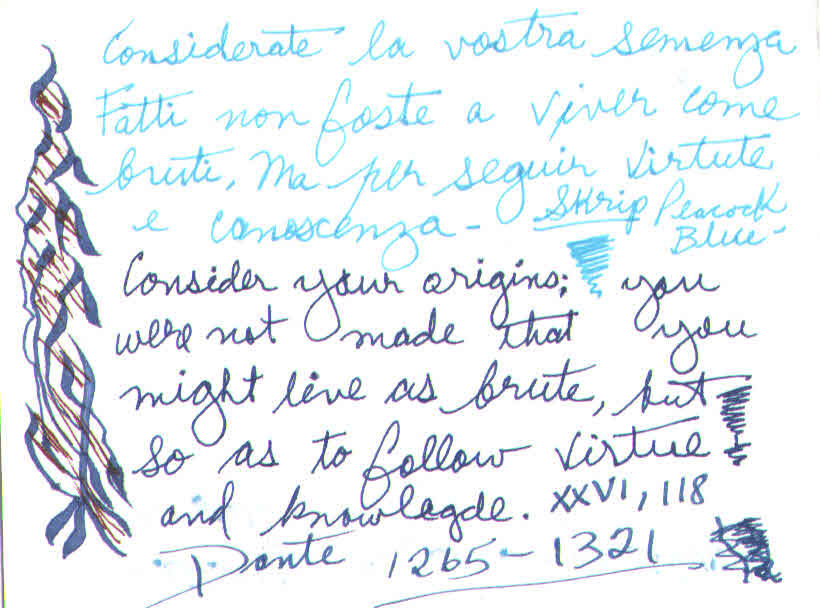 Considerate la vostra semenza
Fatti non foste a viver come
bruti, Ma per seguir virtute
e canoscenza - Skrip Peacock
Blue -
Consider your origins; you
were not made that you
might live as brute, but
so as to follow virtue
and knowlegde. XXVI, 118
Dante 1265-1321